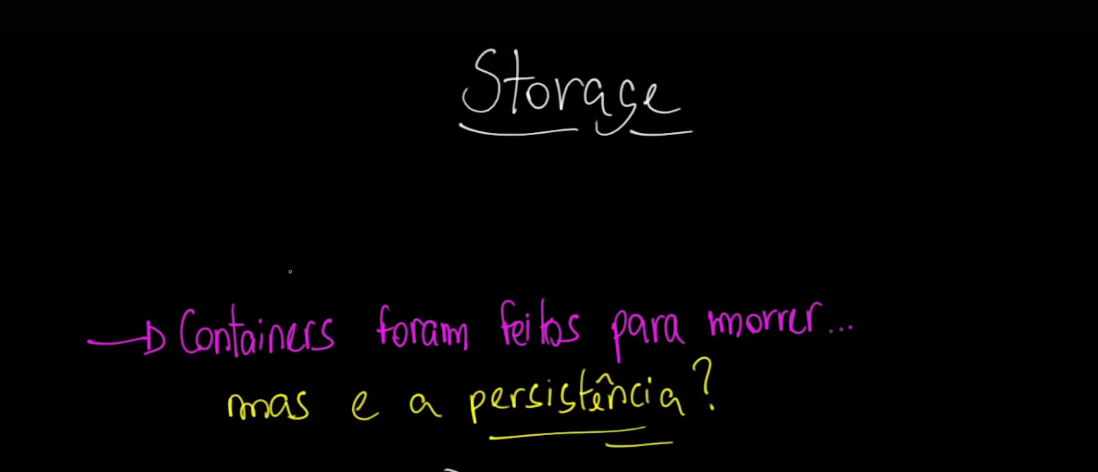 Storage
→ Containers foram feitos para morrer...
mas e a persistência?